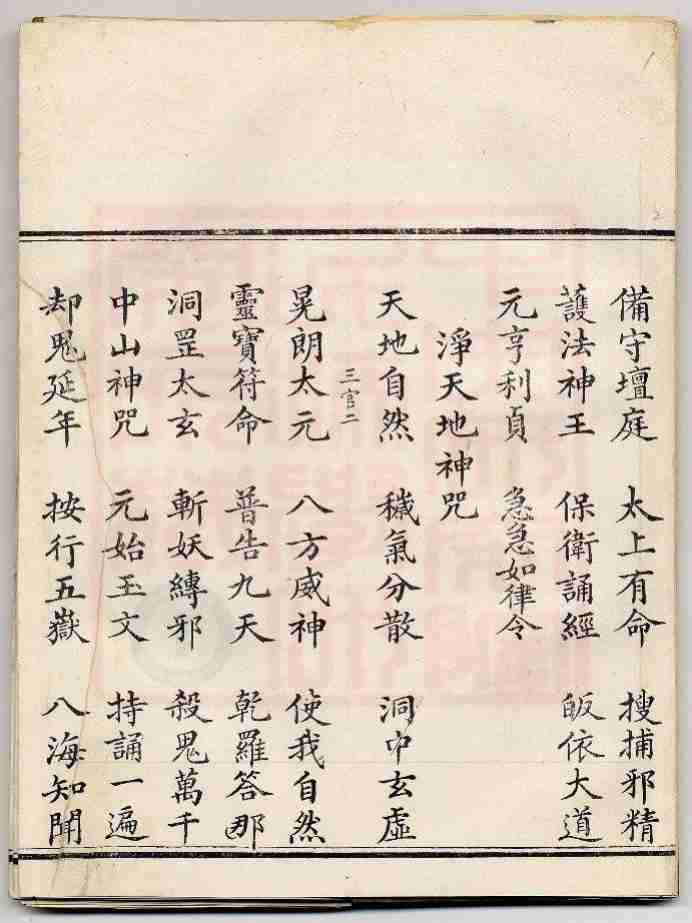 備守壇庭 太上有命 搜捕邪精
護法神王 保衛誦經 皈依大道
元亨利貞 急急如律令
淨天地神咒
天地自然 穢氣分散 洞中玄虛
三官二
晃朗太元 八方威神 使我自然
靈寶符命 普告九天 乾羅答那
洞罡太玄 斬妖縳邪 殺鬼萬千
中山神咒 元始玉文 持誦一遍
却鬼延年 按行五嶽 八海知聞